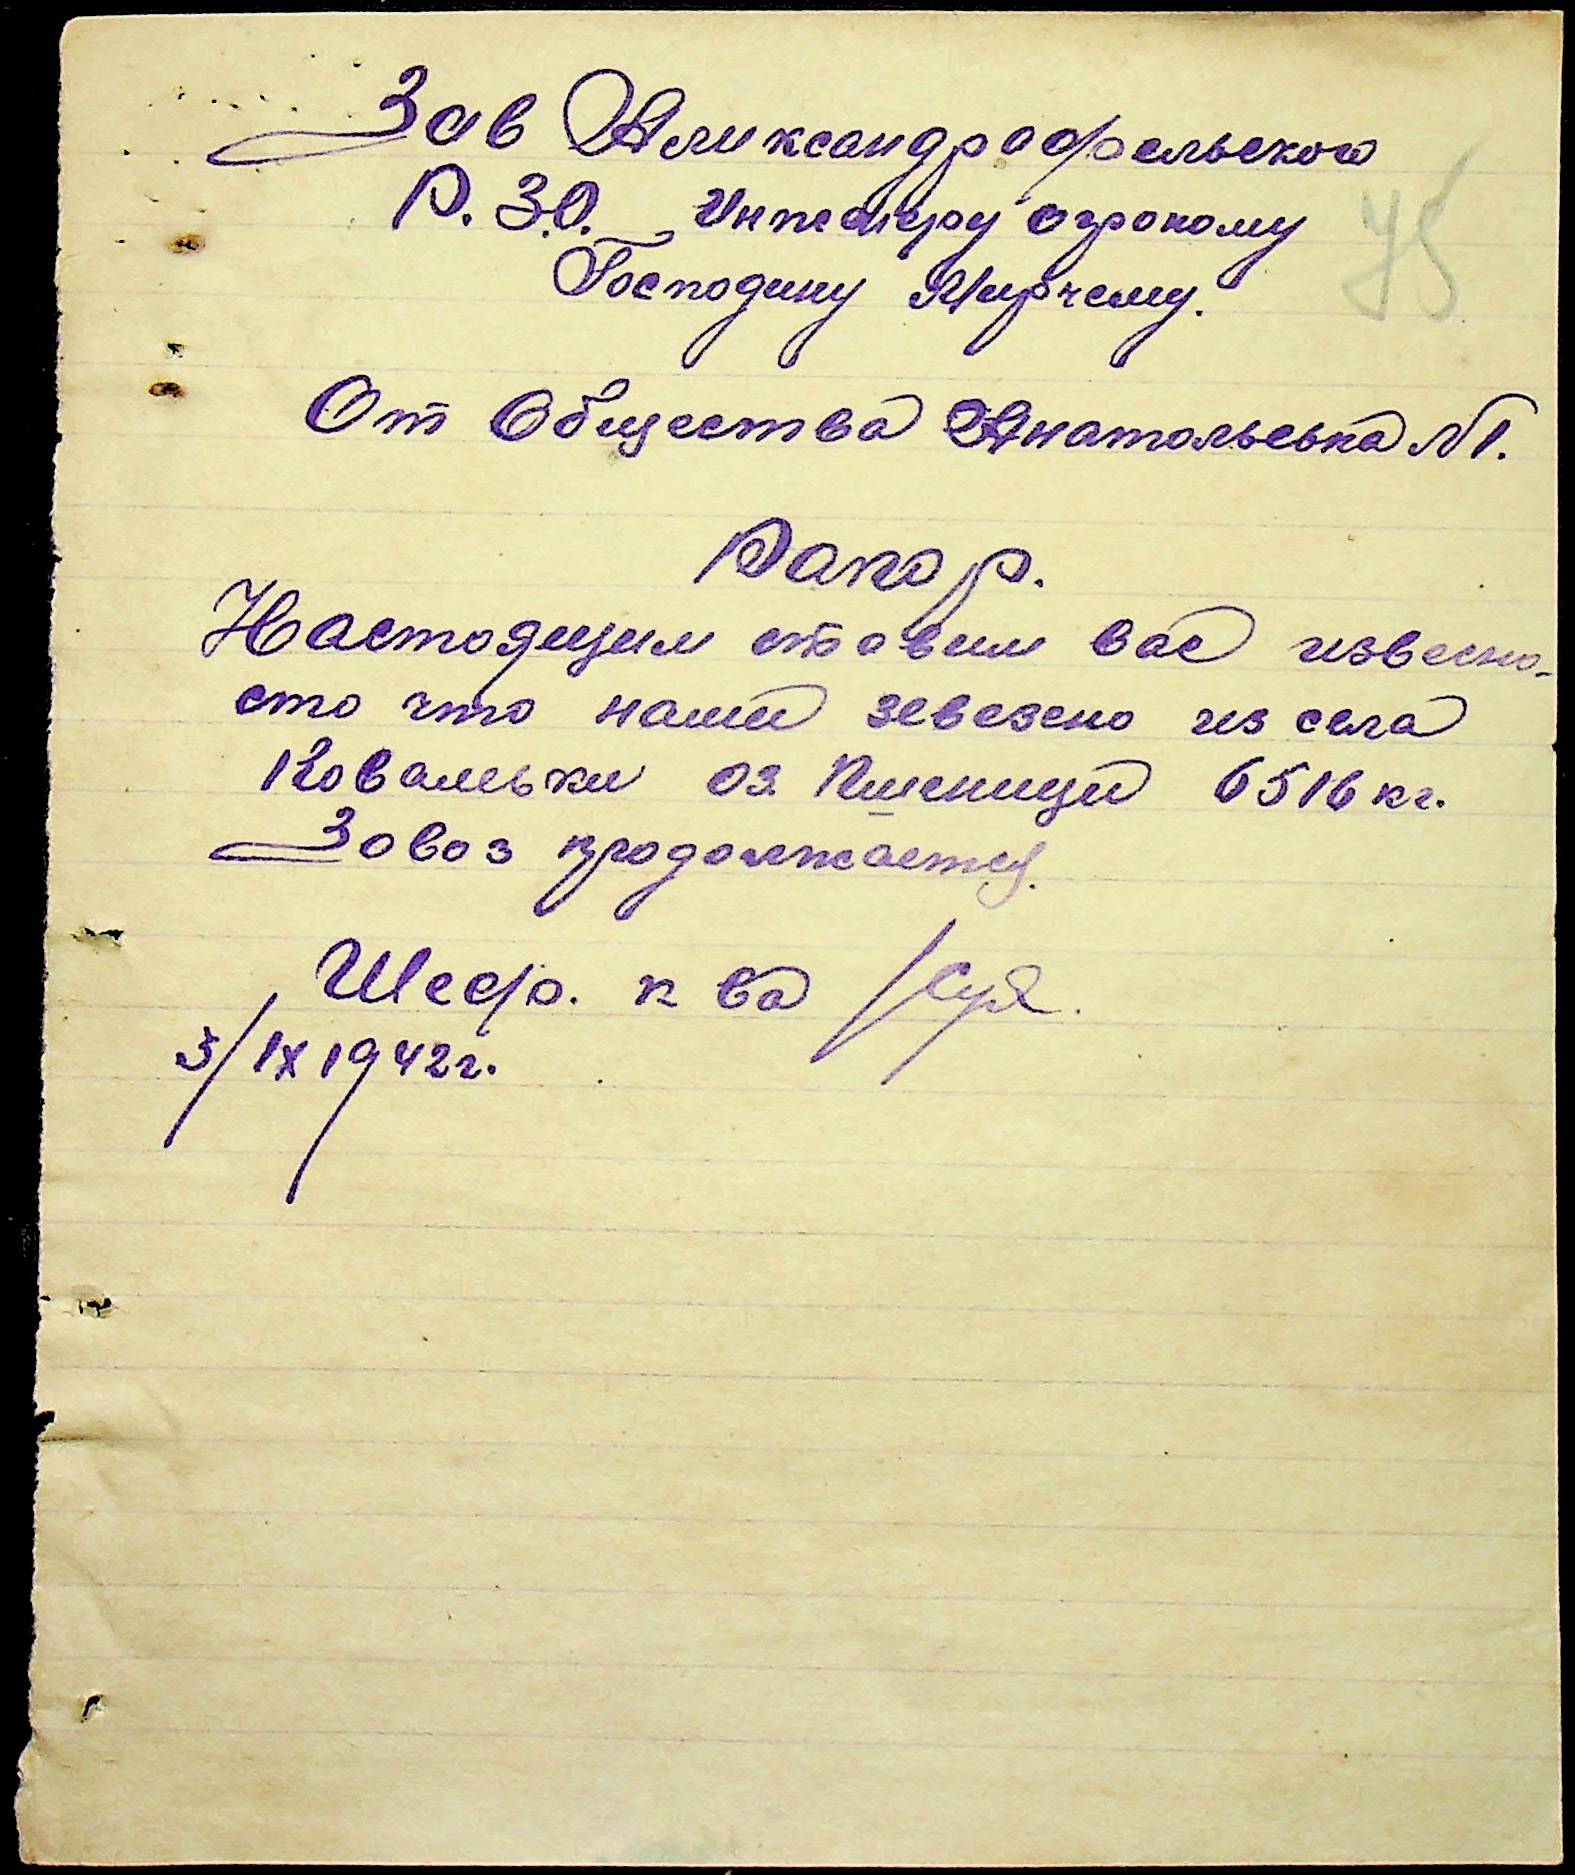 Зав Аликсандрофельского
Р.З.О. Инженеру огроному
Господину Мирчему.
75
От Общества Анатольевька №1.
Рапор.
Настоящим ставим вас извесно-
сто что нами зевезено из села
Ковалевьки оз Пшеници 6516 кг.
Завоз продолжается.
Шеф. к ва
3/IX 1942г.